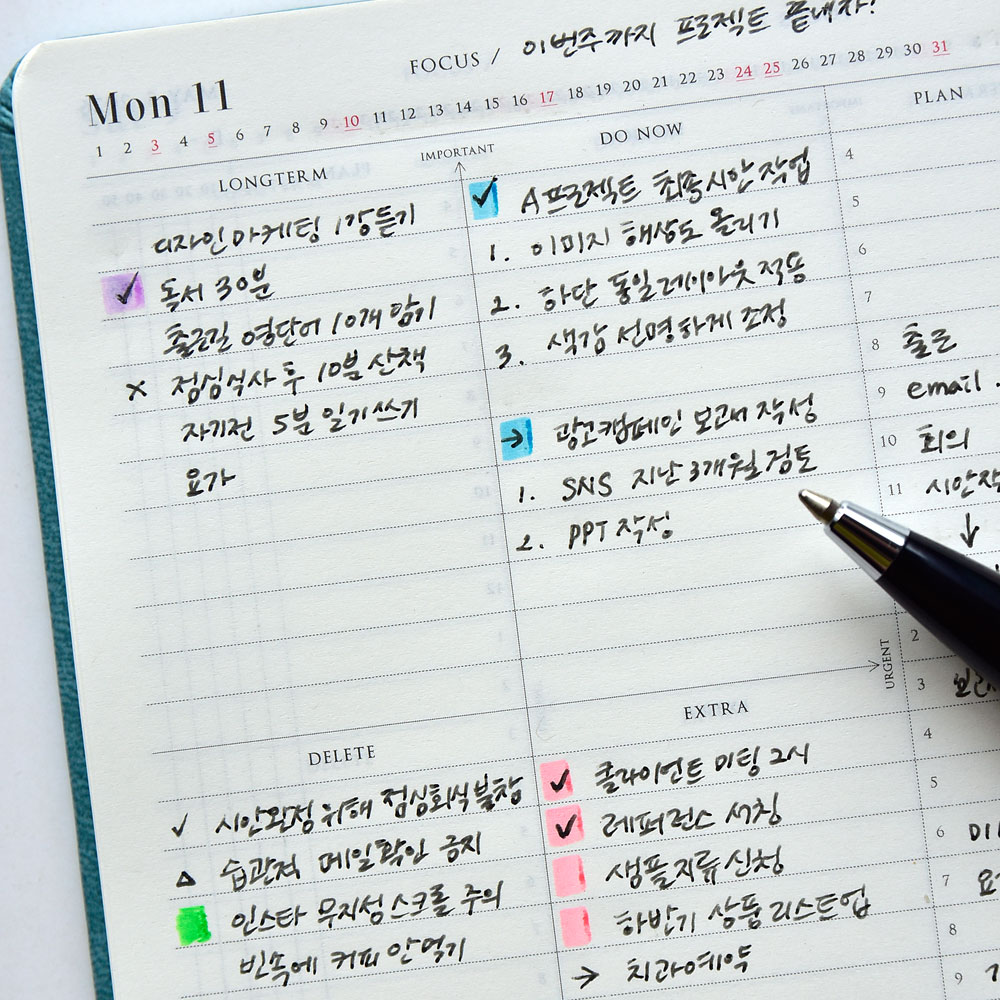 FOCUS / 이번주까지 프로젝트 끝내자!
Mon 11
1 2 3 4 5 6 7 8 9 10 11 12 13 14 15 16 17 18 19 20 21 22 23 24 25 26 27 28 29 30 31
LONGTERM
디자인마케팅 1강듣기
✓ 독서 30분
출근길 영단어 10개 암기
× 점심식사 후 10분 산책
자기전 5분 일기쓰기
요가
IMPORTANT
DO NOW
✓ A프로젝트 최종시안작업
1. 이미지 해상도 올리기
2. 하단 통일레이아웃적용
3. 색감 선명하게 조정
→ 광고캠페인 보고서 작성
1. SNS 지난 3개월 검토
2. PPT 작성
URGENT
PLAN
4
5
6
7
8 출근
9 email
10 회의
11 시안작
↓
2
3
4
5
6
7
8
9
DELETE
✓ 시안완정 위해 점심회식불참
△ 습관적 메일확인 금지
인스타 무지성스크롤 주의
빈속에 커피 안먹기
EXTRA
✓ 클라이언트 미팅 2시
✓ 레퍼런스 서칭
샘플지류신청
하반기 상품리스트업
→ 치과예약